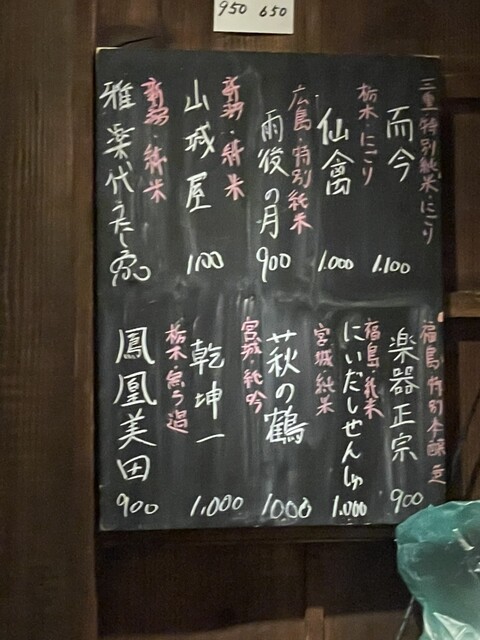 950 650
三重・特別純米・にごり
而今
1.100
栃木・にごり
仙禽
1.000
広島・特別純米
雨後の月
900
新潟・純米
山城屋
1100
新潟・純米
雅楽代
福島・特別本醸造
楽器正宗
900
福島・純米
にいだしぜんしゅ
1.000
宮城・純米
萩の鶴
1000
宮城・純吟
乾坤一
1.000
栃木・無ろ過
鳳凰美田
900